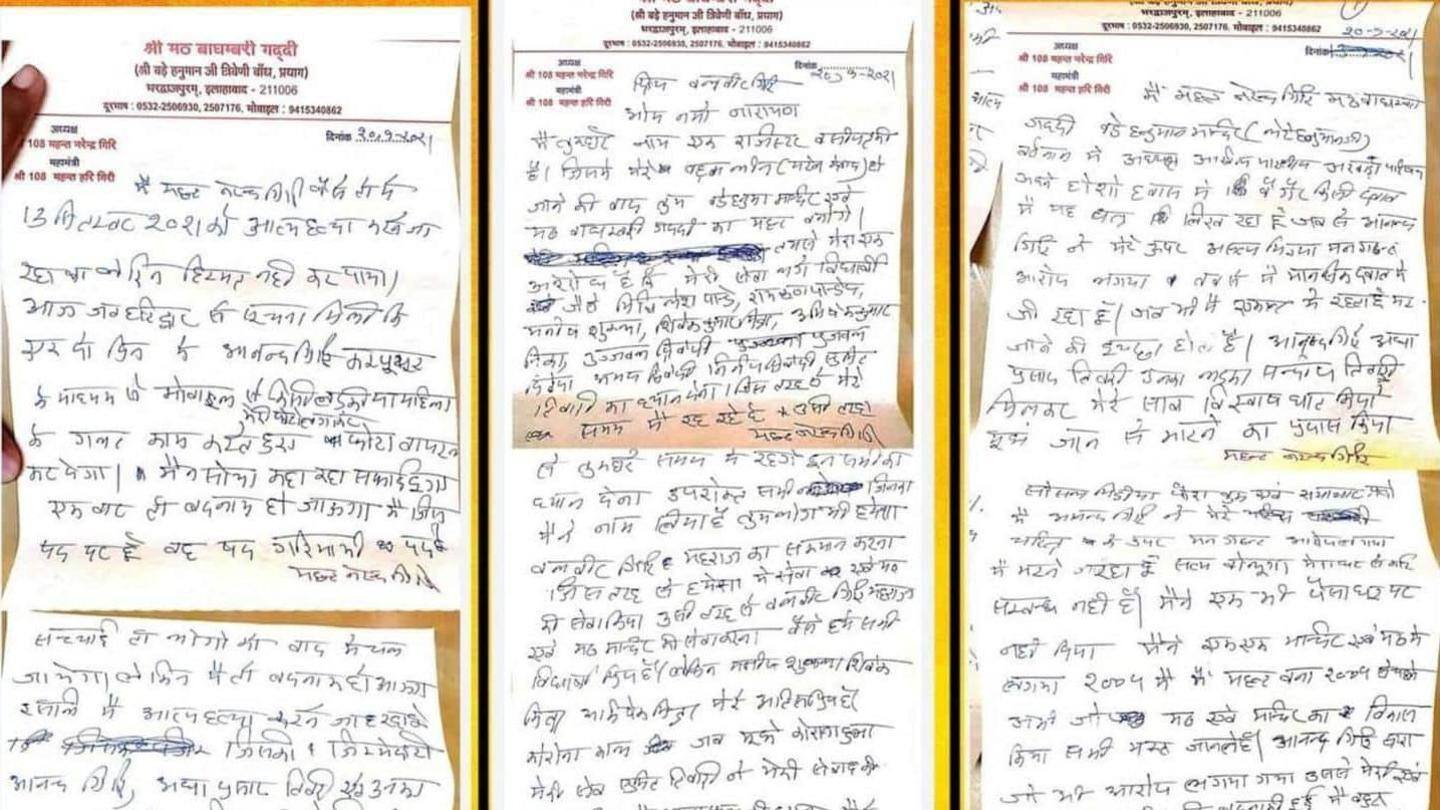 श्री मठ बाघम्बरी गद्दी
(श्री बड़े हनुमान जी त्रिवेणी बाँध, प्रयाग)
भरद्वाजपुरम्, इलाहाबाद - 211006
दूरभाष : 0532-2506930, 2507176, मोबाइल : 9415340862
अध्यक्ष
108 महन्त नरेन्द्र गिरि
महामंत्री
श्री 108 महन्त हरि गिरी
दिनांक
मै महन्त नरेन्द्र गिरि
13 सितम्बर 2021 को आत्महत्या करने जा
रहा था लेकिन हिम्मत नही कर पाया।
आज जब हरिद्वार से सूचना मिली कि
एक दो दिन मे आनन्द गिरि कम्प्यूटर
के माध्यम से मोबाइल से किसी लडकी या महिला
के गलत काम करते हुए फोटो वायरल
कर देगा। मैने सोचा कहा तक सफाई दूंगा
एक बार तो बदनाम हो जाऊगा मै जिस
पद पर हूँ वह पद गरिमामयी पद है
महन्त नरेन्द्र गिरि
सच्चाई तो लोगो को बाद मे चल
जायेगा लेकिन मै तो बदनाम हो जाऊगा
इसलिए मै आत्महत्या करने जा रहा हूँ
जिसकी जिम्मेदारी
आनन्द गिरि, आद्या प्रसाद तिवारी एवं उनका
(श्री बड़े हनुमान जी त्रिवेणी बाँध, प्रयाग)
भरद्वाजपुरम्, इलाहाबाद - 211006
दूरभाष : 0532-2506930, 2507176, मोबाइल : 9415340862
अध्यक्ष
श्री 108 महन्त नरेन्द्र गिरि
महामंत्री
श्री 108 महन्त हरि गिरी
दिनांक
प्रिय बलवीर गिरि
ओम नमो नारायण
मै तुम्हारे नाम एक रजिस्टर वसीयत की
है। जिसमे मेरे ब्रह्मलीन (मरने के बाद) हो
जाने की बाद तुम बडे हनुमान मन्दिर एवं
मठ बाघम्बरी गद्दी का महन्त बनोगे।
तुमसे मेरा एक
अनुरोध है कि मेरी सेवा मे लगे विद्यार्थी
जैसे मिथिलेश पाण्डे, रामकृष्ण पाण्डेय,
मनीष शुक्ला, शिवेक कुमार मिश्रा, अभिषेक कुमार
मिश्रा, उज्जवल द्विवेदी प्रज्वल
द्विवेदी अभय द्विवेदी निर्भय द्विवेदी सुमित
तिवारी का ध्यान देना। जिस तरह से मेरे
समय मे रह रहे है उसी तरह
महन्त नरेन्द्र गिरि
से तुम्हारे समय मे रहेगे इन सभी का
ध्यान देना उपरोक्त सभी जिनका
मैने नाम लिया है तुम लोग भी हमेशा
बलवीर गिरि महाराज का सम्मान करना
जिस तरह से हमेशा मे सेवा एवं मठ
की सेवा किया उसी तरह से बलवीर गिरि महाराज
एवं मठ मन्दिर की सेवा करना वैसे हमे सभी
विद्यार्थी प्रिय है। लेकिन मनीष शुक्ला शिवेक
मिश्रा अभिषेक मिश्रा मेरे अति प्रिय है।
कोरोना काल जब मुझे कोरोना हुआ
मेरी सेवा सुमित तिवारी ने
भरद्वाजपुरम्, इलाहाबाद - 211006
दूरभाष : 0532-2506930, 2507176, मोबाइल : 9415340862
अध्यक्ष
श्री 108 महन्त नरेन्द्र गिरि
महामंत्री
श्री 108 महन्त हरि गिरी
दिनांक
मै महन्त नरेन्द्र गिरि मठ बाघम्बरी
गद्दी बडे हनुमान मन्दिर (लेटे हनुमान जी)
वर्तमान मे अध्यक्ष अखिल भारतीय अखाडा परिषद
अपने होशो हवास मे बगैर किसी दबाव
मे यह पत्र लिख रहा हूँ जब से आनन्द
गिरि ने मेरे ऊपर असत्य मिथ्या मनगढन्त
आरोप लगाया तब से मै मानसिक दबाव मे
जी रहा हूँ। जब भी मै एकान्त मे रहता हूँ मर
जाने की इच्छा होती है। आनन्द गिरि आद्या
प्रसाद तिवारी उनका लडका सन्दीप तिवारी
मिलकर मेरे साथ विश्वासघात किया
मुझे जान से मारने का प्रयास किया
महन्त नरेन्द्र गिरि
सोसल मिडीया फेस बुक एवं समाचार पत्रो
मे आनन्द गिरि ने मेरे
चरित्र के ऊपर मनगढन्त आरोप लगाया
मै मरने जा रहा हूँ सत्य बोलूगा मेरा घर से कोई
सम्बन्ध नही है। मैने एक भी पैसा घर पर
नही दिया मैने एक एक मन्दिर एवं मठ मे
लगाया 2004 मे मै महन्त बना 2004 से पहले
अभी जो मठ एवं मन्दिर का विकास
किया सभी भक्त जानते है। आनन्द गिरि द्वारा
जो भी आरोप लगाया गया उससे मेरी एवं